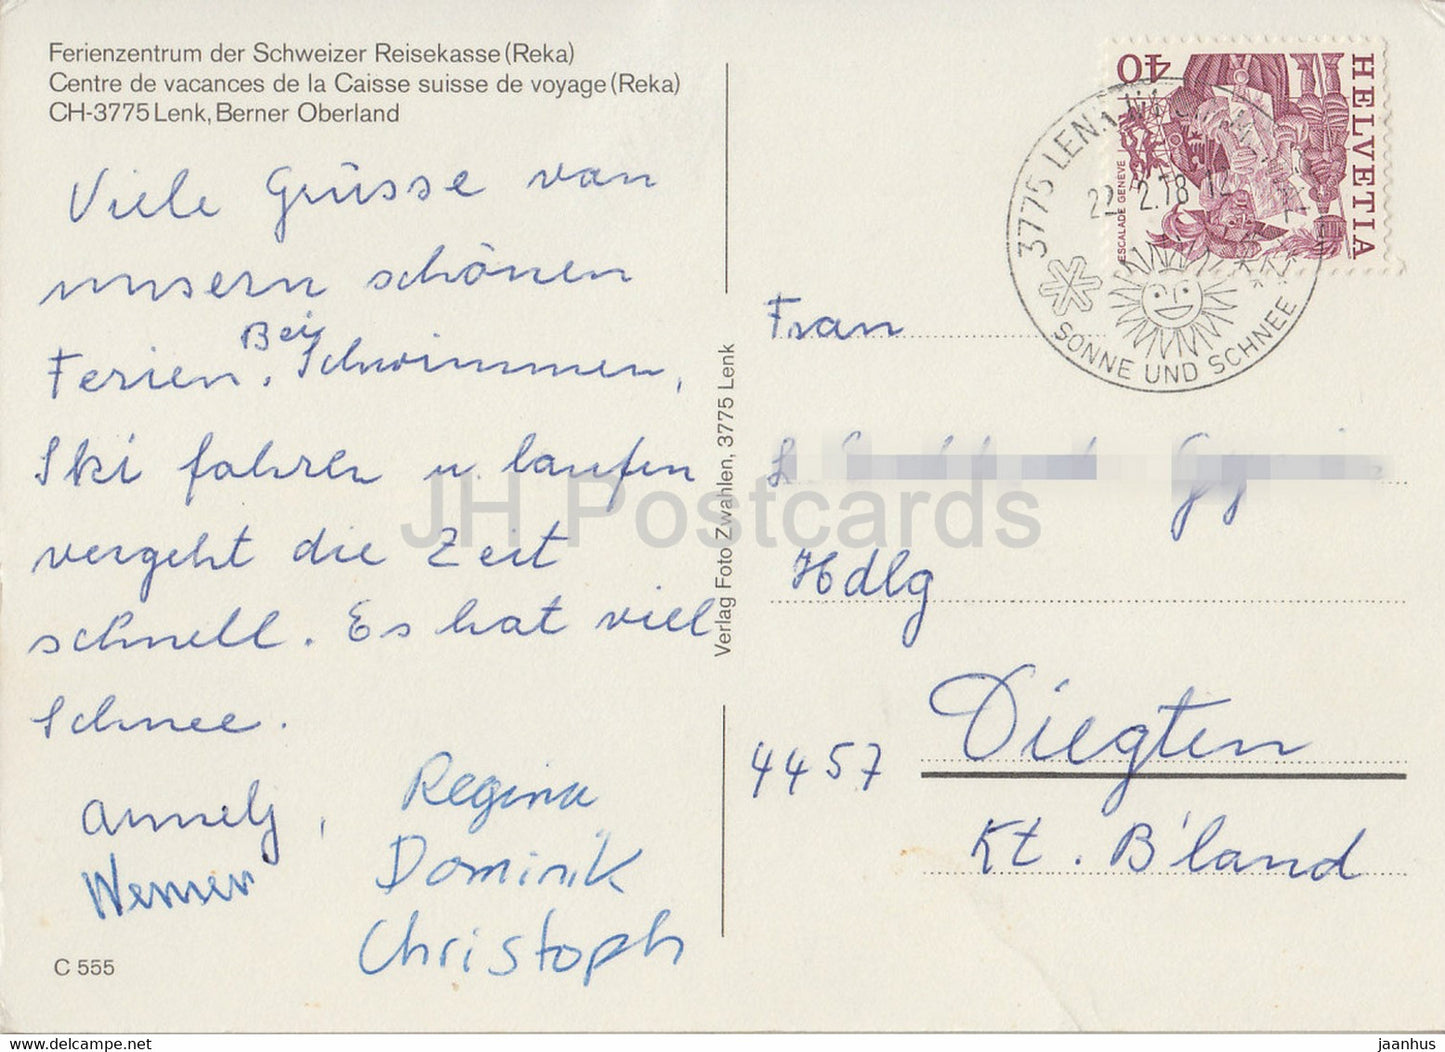 Ferienzentrum der Schweizer Reisekasse (Reka)
Centre de vacances de la Caisse suisse de voyage (Reka)
CH-3775 Lenk, Berner Oberland
Viele Grüsse von
unsern schönen
Ferien. Bei Schwimmen,
Ski fahren u. laufen
vergeht die Zeit
schnell. Es hat viel
Schnee.
Annely,
Werner
Regina
Dominik
Christoph
C 555
Verlag Foto Zwahlen, 3775 Lenk
HELVETIA
40
ESCALADE GENÈVE
3775 LENK
22.2.78 12
SONNE UND SCHNEE
Frau
Hdlg
4457 Diegten
Kt. B'land
JH Postcards
jaanhus — https://www.delcampe.net